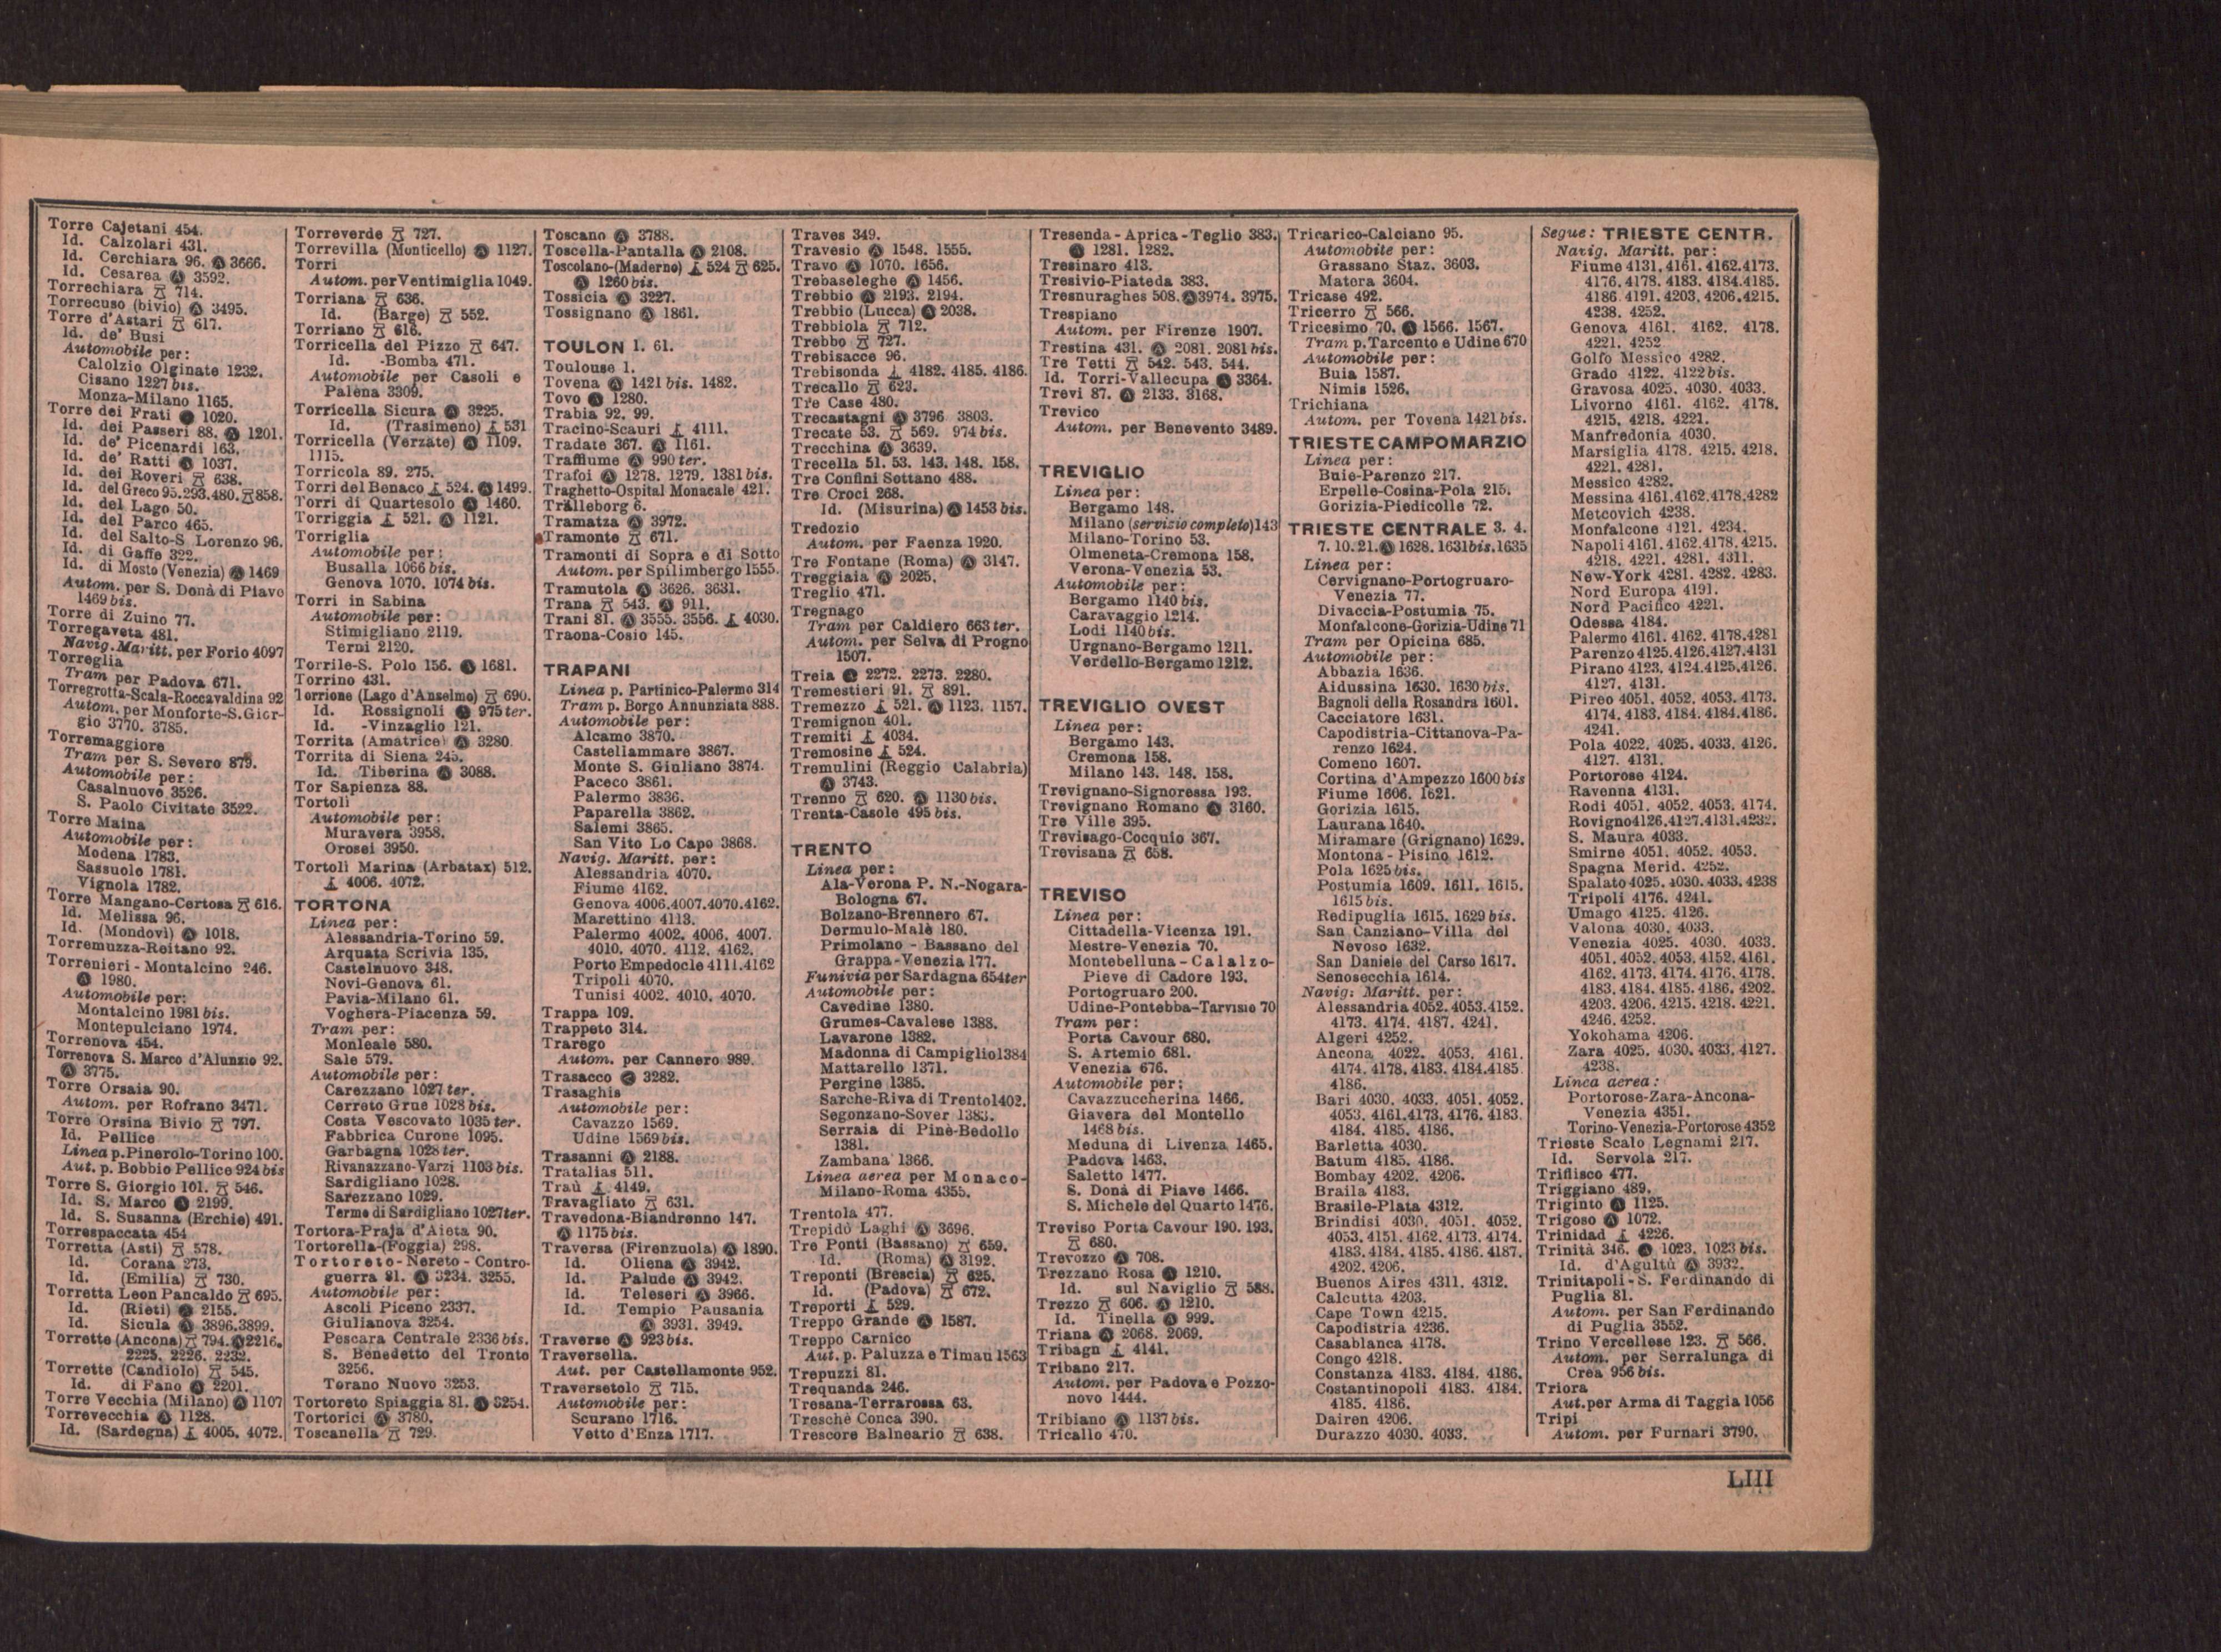 Torre Cajetani 454.
Id. Calzolari 431.
Id. Cerchiara 96. 3666.
Id. Cesarea 3592.
Torrechiara 714.
Torrecuso (bivio) 3495.
Torre d'Astari 617.
Id. de' Busi
Automobile per:
Calolzio Olginate 1232.
Cisano 1227 bis.
Monza-Milano 1165.
Torre dei Frati 1020.
Id. dei Passeri 88. 1201.
Id. de' Picenardi 163.
Id. de' Ratti 1037.
Id. dei Roveri 638.
Id. del Greco 95.293.480. 858.
Id. del Lago 50.
Id. del Parco 465.
Id. del Salto-S Lorenzo 96.
Id. di Gaffe 322.
Id. di Mosto (Venezia) 1469
Autom. per S. Donà di Piave
1469 bis.
Torre di Zuino 77.
Torregaveta 481.
Navig. Maritt. per Forio 4097
Torreglia
Tram per Padova 671.
Torregrotta-Scala-Roccavaldina 92
Autom. per Monforte-S. Gior-
gio 3770. 3785.
Torremaggiore
Tram per S. Severo 879.
Automobile per:
Casalnuovo 3526.
S. Paolo Civitate 3522.
Torre Maina
Automobile per:
Modena 1783.
Sassuolo 1781.
Vignola 1782.
Torre Mangano-Certosa 616.
Id. Melissa 96.
Id. (Mondovì) 1018.
Torremuzza-Reitano 92.
Torrenieri - Montalcino 246.
1980.
Automobile per:
Montalcino 1981 bis.
Montepulciano 1974.
Torrenova 454.
Torrenova S. Marco d'Alunzio 92.
3775.
Torre Orsaia 90.
Autom. per Rofrano 3471.
Torre Orsina Bivio 797.
Id. Pellice
Linea p. Pinerolo-Torino 100.
Aut. p. Bobbio Pellice 924 bis
Torre S. Giorgio 101. 546.
Id. S. Marco 2199.
Id. S. Susanna (Erchie) 491.
Torrespaccata 454
Torretta (Asti) 578.
Id. Corana 273.
Id. (Emilia) 730.
Torretta Leon Pancaldo 695.
Id. (Rieti) 2155.
Id. Sicula 3896.3899.
Torrette (Ancona) 794. 2216.
2225. 2226. 2232.
Torrette (Candiolo) 545.
Id. di Fano 2201.
Torre Vecchia (Milano) 1107
Torrevecchia 1128.
Id. (Sardegna) 4005. 4072.
Torreverde 727.
Torrevilla (Monticello) 1127.
Torri
Autom. per Ventimiglia 1049.
Torriana 636.
Id. (Barge) 552.
Torriano 616.
Torricella del Pizzo 647.
Id. -Bomba 471.
Automobile per Casoli e
Palena 3309.
Torricella Sicura 3225.
Id. (Trasimeno) 531
Torricella (Verzate) 1109.
1115.
Torricola 89. 275.
Torri del Benaco 524. 1499.
Torri di Quartesolo 1460.
Torriggia 521. 1121.
Torriglia
Automobile per:
Busalla 1066 bis.
Genova 1070. 1074 bis.
Torri in Sabina
Automobile per:
Stimigliano 2119.
Terni 2120.
Torrile-S. Polo 156. 1681.
Torrino 431.
Torrione (Lago d'Anselmo) 690.
Id. Rossignoli 975 ter.
Id. -Vinzaglio 121.
Torrita (Amatrice) 3280.
Torrita di Siena 245.
Id. Tiberina 3088.
Tor Sapienza 88.
Tortolì
Automobile per:
Muravera 3958.
Orosei 3950.
Tortolì Marina (Arbatax) 512.
4006. 4072.
TORTONA
Linea per:
Alessandria-Torino 59.
Arquata Scrivia 135.
Castelnuovo 348.
Novi-Genova 61.
Pavia-Milano 61.
Voghera-Piacenza 59.
Tram per:
Monleale 580.
Sale 579.
Automobile per:
Carezzano 1027 ter.
Cerreto Grue 1028 bis.
Costa Vescovato 1035 ter.
Fabbrica Curone 1095.
Garbagna 1028 ter.
Rivanazzano-Varzi 1103 bis.
Sardigliano 1028.
Sarezzano 1029.
Terme di Sardigliano 1027 ter.
Tortora-Praja d'Aieta 90.
Tortorella-(Foggia) 298.
Tortoreto-Nereto-Contro-
guerra 81. 3234. 3255.
Automobile per:
Ascoli Piceno 2337.
Giulianova 3254.
Pescara Centrale 2336 bis.
S. Benedetto del Tronto
3256.
Torano Nuovo 3253.
Tortoreto Spiaggia 81. 3254.
Tortorici 3780.
Toscanella 729.
Toscano 3788.
Toscella-Pantalla 2108.
Toscolano-(Maderno) 524 625.
1260 bis.
Tossicia 3227.
Tossignano 1861.
TOULON 1. 61.
Toulouse 1.
Tovena 1421 bis. 1482.
Tovo 1280.
Trabia 92. 99.
Tracino-Scauri 4111.
Tradate 367. 1161.
Traffiume 990 ter.
Trafoi 1278. 1279. 1381 bis.
Traghetto-Ospital Monacale 421.
Trälleborg 6.
Tramatza 3972.
Tramonte 671.
Tramonti di Sopra e di Sotto
Autom. per Spilimbergo 1555.
Tramutola 3626. 3631.
Trana 543. 911.
Trani 81. 3555. 3556. 4030.
Traona-Cosio 145.
TRAPANI
Linea p. Partinico-Palermo 314
Tram p. Borgo Annunziata 888.
Automobile per:
Alcamo 3870.
Castellammare 3867.
Monte S. Giuliano 3874.
Paceco 3861.
Palermo 3836.
Paparella 3862.
Salemi 3865.
San Vito Lo Capo 3868.
Navig. Maritt. per:
Alessandria 4070.
Fiume 4162.
Genova 4006.4007.4070.4162.
Marettino 4113.
Palermo 4002. 4006. 4007.
4010. 4070. 4112. 4162.
Porto Empedocle 4111.4162
Tripoli 4070.
Tunisi 4002. 4010. 4070.
Trappa 109.
Trappeto 314.
Trarego
Autom. per Cannero 989.
Trasacco 3282.
Trasaghis
Automobile per:
Cavazzo 1569.
Udine 1569 bis.
Trasanni 2188.
Tratalias 511.
Traù 4149.
Travagliato 631.
Travedona-Biandronno 147.
1175 bis.
Traversa (Firenzuola) 1890.
Id. Oliena 3942.
Id. Palude 3942.
Id. Teleseri 3966.
Id. Tempio Pausania
3931. 3949.
Traverse 923 bis.
Traversella.
Aut. per Castellamonte 952.
Traversetolo 715.
Automobile per:
Scurano 1716.
Vetto d'Enza 1717.
Traves 349.
Travesio 1548. 1555.
Travo 1070. 1656.
Trebaseleghe 1456.
Trebbio 2193. 2194.
Trebbio (Lucca) 2038.
Trebbiola 712.
Trebbo 727.
Trebisacce 96.
Trebisonda 4182. 4185. 4186.
Trecallo 623.
Tre Case 480.
Trecastagni 3796 3803.
Trecate 53. 569. 974 bis.
Trecchina 3639.
Trecella 51. 53. 143. 148. 158.
Tre Confini Sottano 488.
Tre Croci 268.
Id. (Misurina) 1453 bis.
Tredozio
Autom. per Faenza 1920.
Tre Fontane (Roma) 3147.
Treggiaia 2025.
Treglio 471.
Tregnago
Tram per Caldiero 663 ter.
Autom. per Selva di Progno
1507.
Treia 2272. 2273. 2280.
Tremestieri 91. 891.
Tremezzo 521. 1123. 1157.
Tremignon 401.
Tremiti 4034.
Tremosine 524.
Tremulini (Reggio Calabria)
3743.
Trenno 620. 1130 bis.
Trenta-Casole 495 bis.
TRENTO
Linea per:
Ala-Verona P. N.-Nogara-
Bologna 67.
Bolzano-Brennero 67.
Dermulo-Malè 180.
Primolano - Bassano del
Grappa-Venezia 177.
Funivia per Sardagna 654 ter
Automobile per:
Cavedine 1380.
Grumes-Cavalese 1388.
Lavarone 1382.
Madonna di Campiglio 1384
Mattarello 1371.
Pergine 1385.
Sarche-Riva di Trento 1402.
Segonzano-Sover 1383.
Serraia di Pinè-Bedollo
1381.
Zambana 1366.
Linea aerea per Monaco-
Milano-Roma 4355.
Trentola 477.
Trepidò Laghi 3696.
Tre Ponti (Bassano) 659.
Id. (Roma) 3192.
Treponti (Brescia) 625.
Id. (Padova) 672.
Treporti 529.
Treppo Grande 1587.
Treppo Carnico
Aut. p. Paluzza e Timau 1563
Trepuzzi 81.
Trequanda 246.
Tresana-Terrarossa 63.
Treschè Conca 390.
Trescore Balneario 638.
Tresenda - Aprica - Teglio 383.
1281. 1282.
Tresinaro 413.
Tresivio-Piateda 383.
Tresnuraghes 508. 3974. 3975.
Trespiano
Autom. per Firenze 1907.
Trestina 431. 2081. 2081 bis.
Tre Tetti 542. 543. 544.
Id. Torri-Vallecupa 3364.
Trevi 87. 2133. 3168.
Trevico
Autom. per Benevento 3489.
TREVIGLIO
Linea per:
Bergamo 148.
Milano (servizio completo) 143
Milano-Torino 53.
Olmeneta-Cremona 158.
Verona-Venezia 53.
Automobile per:
Bergamo 1140 bis.
Caravaggio 1214.
Lodi 1140 bis.
Urgnano-Bergamo 1211.
Verdello-Bergamo 1212.
TREVIGLIO OVEST
Linea per:
Bergamo 143.
Cremona 158.
Milano 143. 148. 158.
Trevignano-Signoressa 193.
Trevignano Romano 3160.
Tre Ville 395.
Trevisago-Cocquio 367.
Trevisana 658.
TREVISO
Linea per:
Cittadella-Vicenza 191.
Mestre-Venezia 70.
Montebelluna - Calalzo-
Pieve di Cadore 193.
Portogruaro 200.
Udine-Pontebba-Tarvisio 70
Tram per:
Porta Cavour 680.
S. Artemio 681.
Venezia 676.
Automobile per:
Cavazzuccherina 1466.
Giavera del Montello
1468 bis.
Meduna di Livenza 1465.
Padova 1463.
Saletto 1477.
S. Donà di Piave 1466.
S. Michele del Quarto 1476.
Treviso Porta Cavour 190. 193.
680.
Trevozzo 708.
Trezzano Rosa 1210.
Id. sul Naviglio 588.
Trezzo 606. 1210.
Id. Tinella 999.
Triana 2068. 2069.
Tribagn 4141.
Tribano 217.
Autom. per Padova e Pozzo-
novo 1444.
Tribiano 1137 bis.
Tricallo 470.
Tricarico-Calciano 95.
Automobile per:
Grassano Staz. 3603.
Matera 3604.
Tricase 492.
Tricerro 566.
Tricesimo 70. 1566. 1567.
Tram p. Tarcento e Udine 670
Automobile per:
Buia 1587.
Nimis 1526.
Trichiana
Autom. per Tovena 1421 bis.
TRIESTE CAMPOMARZIO
Linea per:
Buie-Parenzo 217.
Erpelle-Cosina-Pola 215.
Gorizia-Piedicolle 72.
TRIESTE CENTRALE 3. 4.
7. 10. 21. 1628. 1631 bis. 1635
Linea per:
Cervignano-Portogruaro-
Venezia 77.
Divaccia-Postumia 75.
Monfalcone-Gorizia-Udine 71
Tram per Opicina 685.
Automobile per:
Abbazia 1636.
Aidussina 1630. 1630 bis.
Bagnoli della Rosandra 1601.
Cacciatore 1631.
Capodistria-Cittanova-Pa-
renzo 1624.
Comeno 1607.
Cortina d'Ampezzo 1600 bis
Fiume 1606. 1621.
Gorizia 1615.
Laurana 1640.
Miramare (Grignano) 1629.
Montona - Pisino 1612.
Pola 1625 bis.
Postumia 1609. 1611. 1615.
1615 bis.
Redipuglia 1615. 1629 bis.
San Canziano-Villa del
Nevoso 1632.
San Daniele del Carso 1617.
Senosecchia 1614.
Navig. Maritt. per:
Alessandria 4052. 4053. 4152.
4173. 4174. 4187. 4241.
Algeri 4252.
Ancona 4022. 4053. 4161.
4174. 4178. 4183. 4184.4185
4186.
Bari 4030. 4033. 4051. 4052.
4053. 4161.4173. 4176. 4183.
4184. 4185. 4186.
Barletta 4030.
Batum 4185. 4186.
Bombay 4202. 4206.
Braila 4183.
Brasile-Plata 4312.
Brindisi 4030. 4051. 4052.
4053. 4151. 4162. 4173. 4174.
4183. 4184. 4185. 4186. 4187.
4202. 4206.
Buenos Aires 4311. 4312.
Calcutta 4203.
Cape Town 4215.
Capodistria 4236.
Casablanca 4178.
Congo 4218.
Constanza 4183. 4184. 4186.
Costantinopoli 4183. 4184.
4185. 4186.
Dairen 4206.
Durazzo 4030. 4033.
Segue: TRIESTE CENTR.
Navig. Maritt. per:
Fiume 4131. 4161. 4162.4173.
4176. 4178. 4183. 4184.4185.
4186. 4191. 4203. 4206.4215.
4238. 4252.
Genova 4161. 4162. 4178.
4221. 4252
Golfo Messico 4282.
Grado 4122. 4122 bis.
Gravosa 4025. 4030. 4033.
Livorno 4161. 4162. 4178.
4215. 4218. 4221.
Manfredonia 4030.
Marsiglia 4178. 4215. 4218.
4221. 4281.
Messico 4282.
Messina 4161.4162.4178.4282
Metcovich 4238.
Monfalcone 4121. 4234.
Napoli 4161.4162.4178. 4215.
4218. 4221. 4281. 4311.
New-York 4281. 4282. 4283.
Nord Europa 4191.
Nord Pacifico 4221.
Odessa 4184.
Palermo 4161. 4162. 4178.4281
Parenzo 4125.4126.4127.4131
Pirano 4123. 4124.4125.4126.
4127. 4131.
Pireo 4051. 4052. 4053. 4173.
4174. 4183. 4184. 4184.4186.
4241.
Pola 4022. 4025. 4033. 4126.
4127. 4131.
Portorose 4124.
Ravenna 4131.
Rodi 4051. 4052. 4053. 4174.
Rovigno 4126.4127.4131.4232.
S. Maura 4033.
Smirne 4051. 4052. 4053.
Spagna Merid. 4252.
Spalato 4025. 4030. 4033. 4238
Tripoli 4176. 4241.
Umago 4125. 4126.
Valona 4030. 4033.
Venezia 4025. 4030. 4033.
4051. 4052. 4053. 4152. 4161.
4162. 4173. 4174. 4176. 4178.
4183. 4184. 4185. 4186. 4202.
4203. 4206. 4215. 4218. 4221.
4246. 4252.
Yokohama 4206.
Zara 4025. 4030. 4033. 4127.
4238.
Linea aerea:
Portorose-Zara-Ancona-
Venezia 4351.
Torino-Venezia-Portorose 4352
Trieste Scalo Legnami 217.
Id. Servola 217.
Triflisco 477.
Triggiano 489.
Triginto 1125.
Trigoso 1072.
Trinidad 4226.
Trinità 346. 1023. 1023 bis.
Id. d'Agultù 3932.
Trinitapoli - S. Ferdinando di
Puglia 81.
Autom. per San Ferdinando
di Puglia 3552.
Trino Vercellese 123. 566.
Autom. per Serralunga di
Crea 956 bis.
Triora
Aut. per Arma di Taggia 1056
Tripi
Autom. per Furnari 3790.
LIII